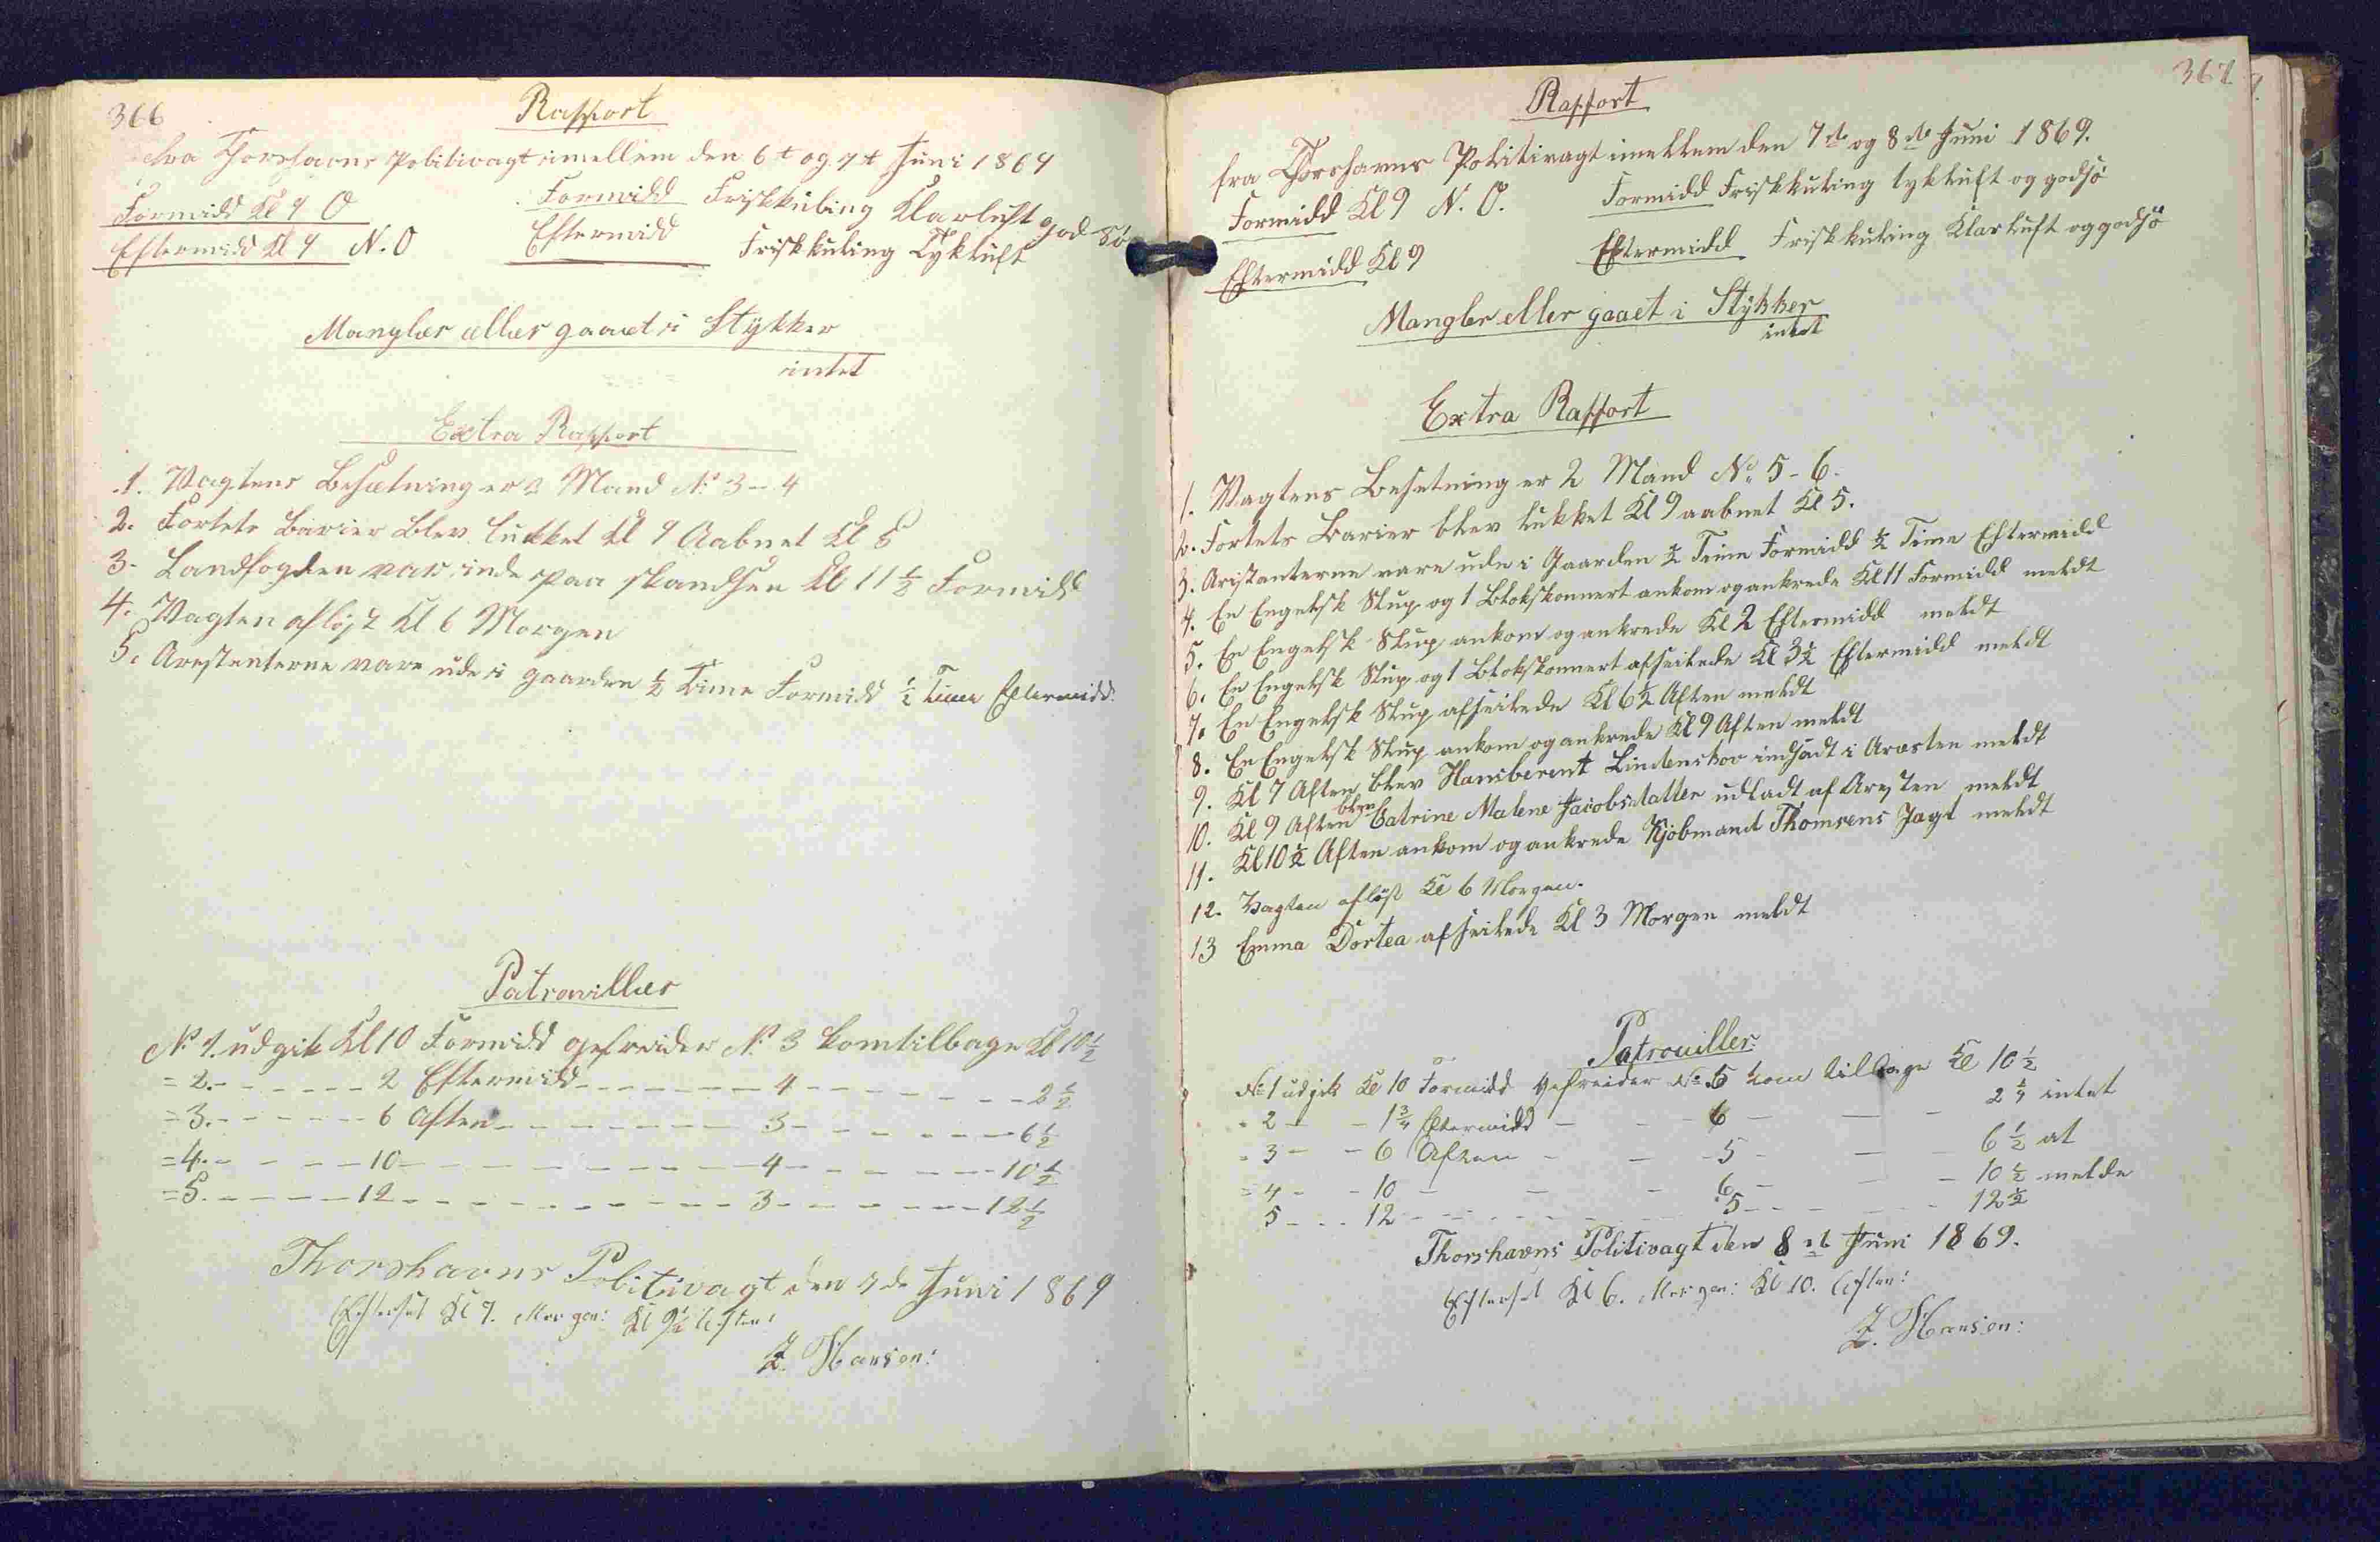 366
Rapport
fra Thorshavns Politivagt imellem den 6t og 7t Juni 1869
Formidd Kl 9 O Formidd Friskkuling Klarluft god Sö
Eftermidd Kl 9 N.O Eftermidd Friskkuling Tykluft
Mangler eller gaaet i Stykker
intet
Extra Rapport
1. Vagtens Besætning er 2 Mand No 3-4
2. Fortets Barier blev lukket Kl 9 Aabnet Kl 5
3. Landfogden var inde paa Skandsen Kl 11 1/2 Formidd
4. Vagten aflöst Kl 6 Morgen
5. Arestanterne vare ude i gaarden 1/2 Time Formidd 1/2 Time Eftermidd.
Patrouviller
No 1. udgik Kl 10 Formidd gefreider No 3 kom tilbage Kl 10 1/2
= 2. - - - - - - 2 Eftermidd - - - - - - - 4 - - - - - - - 2 1/2
= 3. - - - - - - 6 Aften - - - - - - - 3 - - - - - - - 6 1/2
= 4. - - - - - 10 - - - - - - - - - - 4 - - - - - - - 10 1/2
= 5. - - - - - 12 - - - - - - - - - - 3 - - - - - - - 12 1/2
Thorshavns Politivagt den 7de Juni 1869
Efterset Kl 7. Morgen: Kl 9 1/2 Aften:
Z. Hansen:
367
Rapport
fra Thorshavns Politivagt imellem den 7de og 8de Juni 1869.
Formidd Kl 9 N. O. Formidd Friskkuling tykluft og godsö
Eftermidd Kl 9 Eftermidd Friskkuling Klarluft og godsö
Mangler eller gaaet i Stykker
intet
Extra Rapport
1. Vagtens Besetning er 2 Mand No 5-6.
2. Fortets Barier blev lukket Kl 9 aabnet Kl 5.
3. Aristanterne vare ude i Gaarden 1/2 Time Formidd 1/2 Time Eftermidd
4. En Engelsk Slup og 1 Blokskonnert ankom og ankrede Kl 11 Formidd meldt
5. En Engelsk Slup ankom og ankrede Kl 2 Eftermidd meldt
6. En Engelsk Slup og 1 Blokskonnert afseilede Kl 3 1/2 Eftermidd meldt
7. En Engelsk Slup afseilede Kl 6 1/2 Aften meldt
8. En Engelsk Slup ankom og ankrede Kl 9 Aften meldt
9. Kl 7 Aften blev Hansberent Lindenskov indsadt i Aræsten meldt
10. Kl 9 Aften blev Catrine Malene Jacobsdatter udladt af Aresten meldt
11. Kl 10 1/2 Aften ankom og ankrede Kjöbmand Thomsens Jagt meldt
12. Vagten aflöst Kl 6 Morgen.
13 Emma Dortea afseilede Kl 3 Morgen meldt
Patrouiller
No 1 udgik Kl 10 Formidd Gefreider No 5 kom tilbage Kl 10 1/2
= 2 - - 1 3/4 Eftermidd - - - 6 - - - 2 1/4 intet
= 3 - - 6 Aften - - - 5 - - - 6 1/2 at
= 4 - - 10 - - - 6 - - - 10 1/2 melde
5 - - - 12 - - - - - 5 - - - - - 12 1/2
Thorshavns Politivagt den 8de Juni 1869.
Efterset Kl 6. Morgen: Kl 10. Aften:
Z. Hansen: